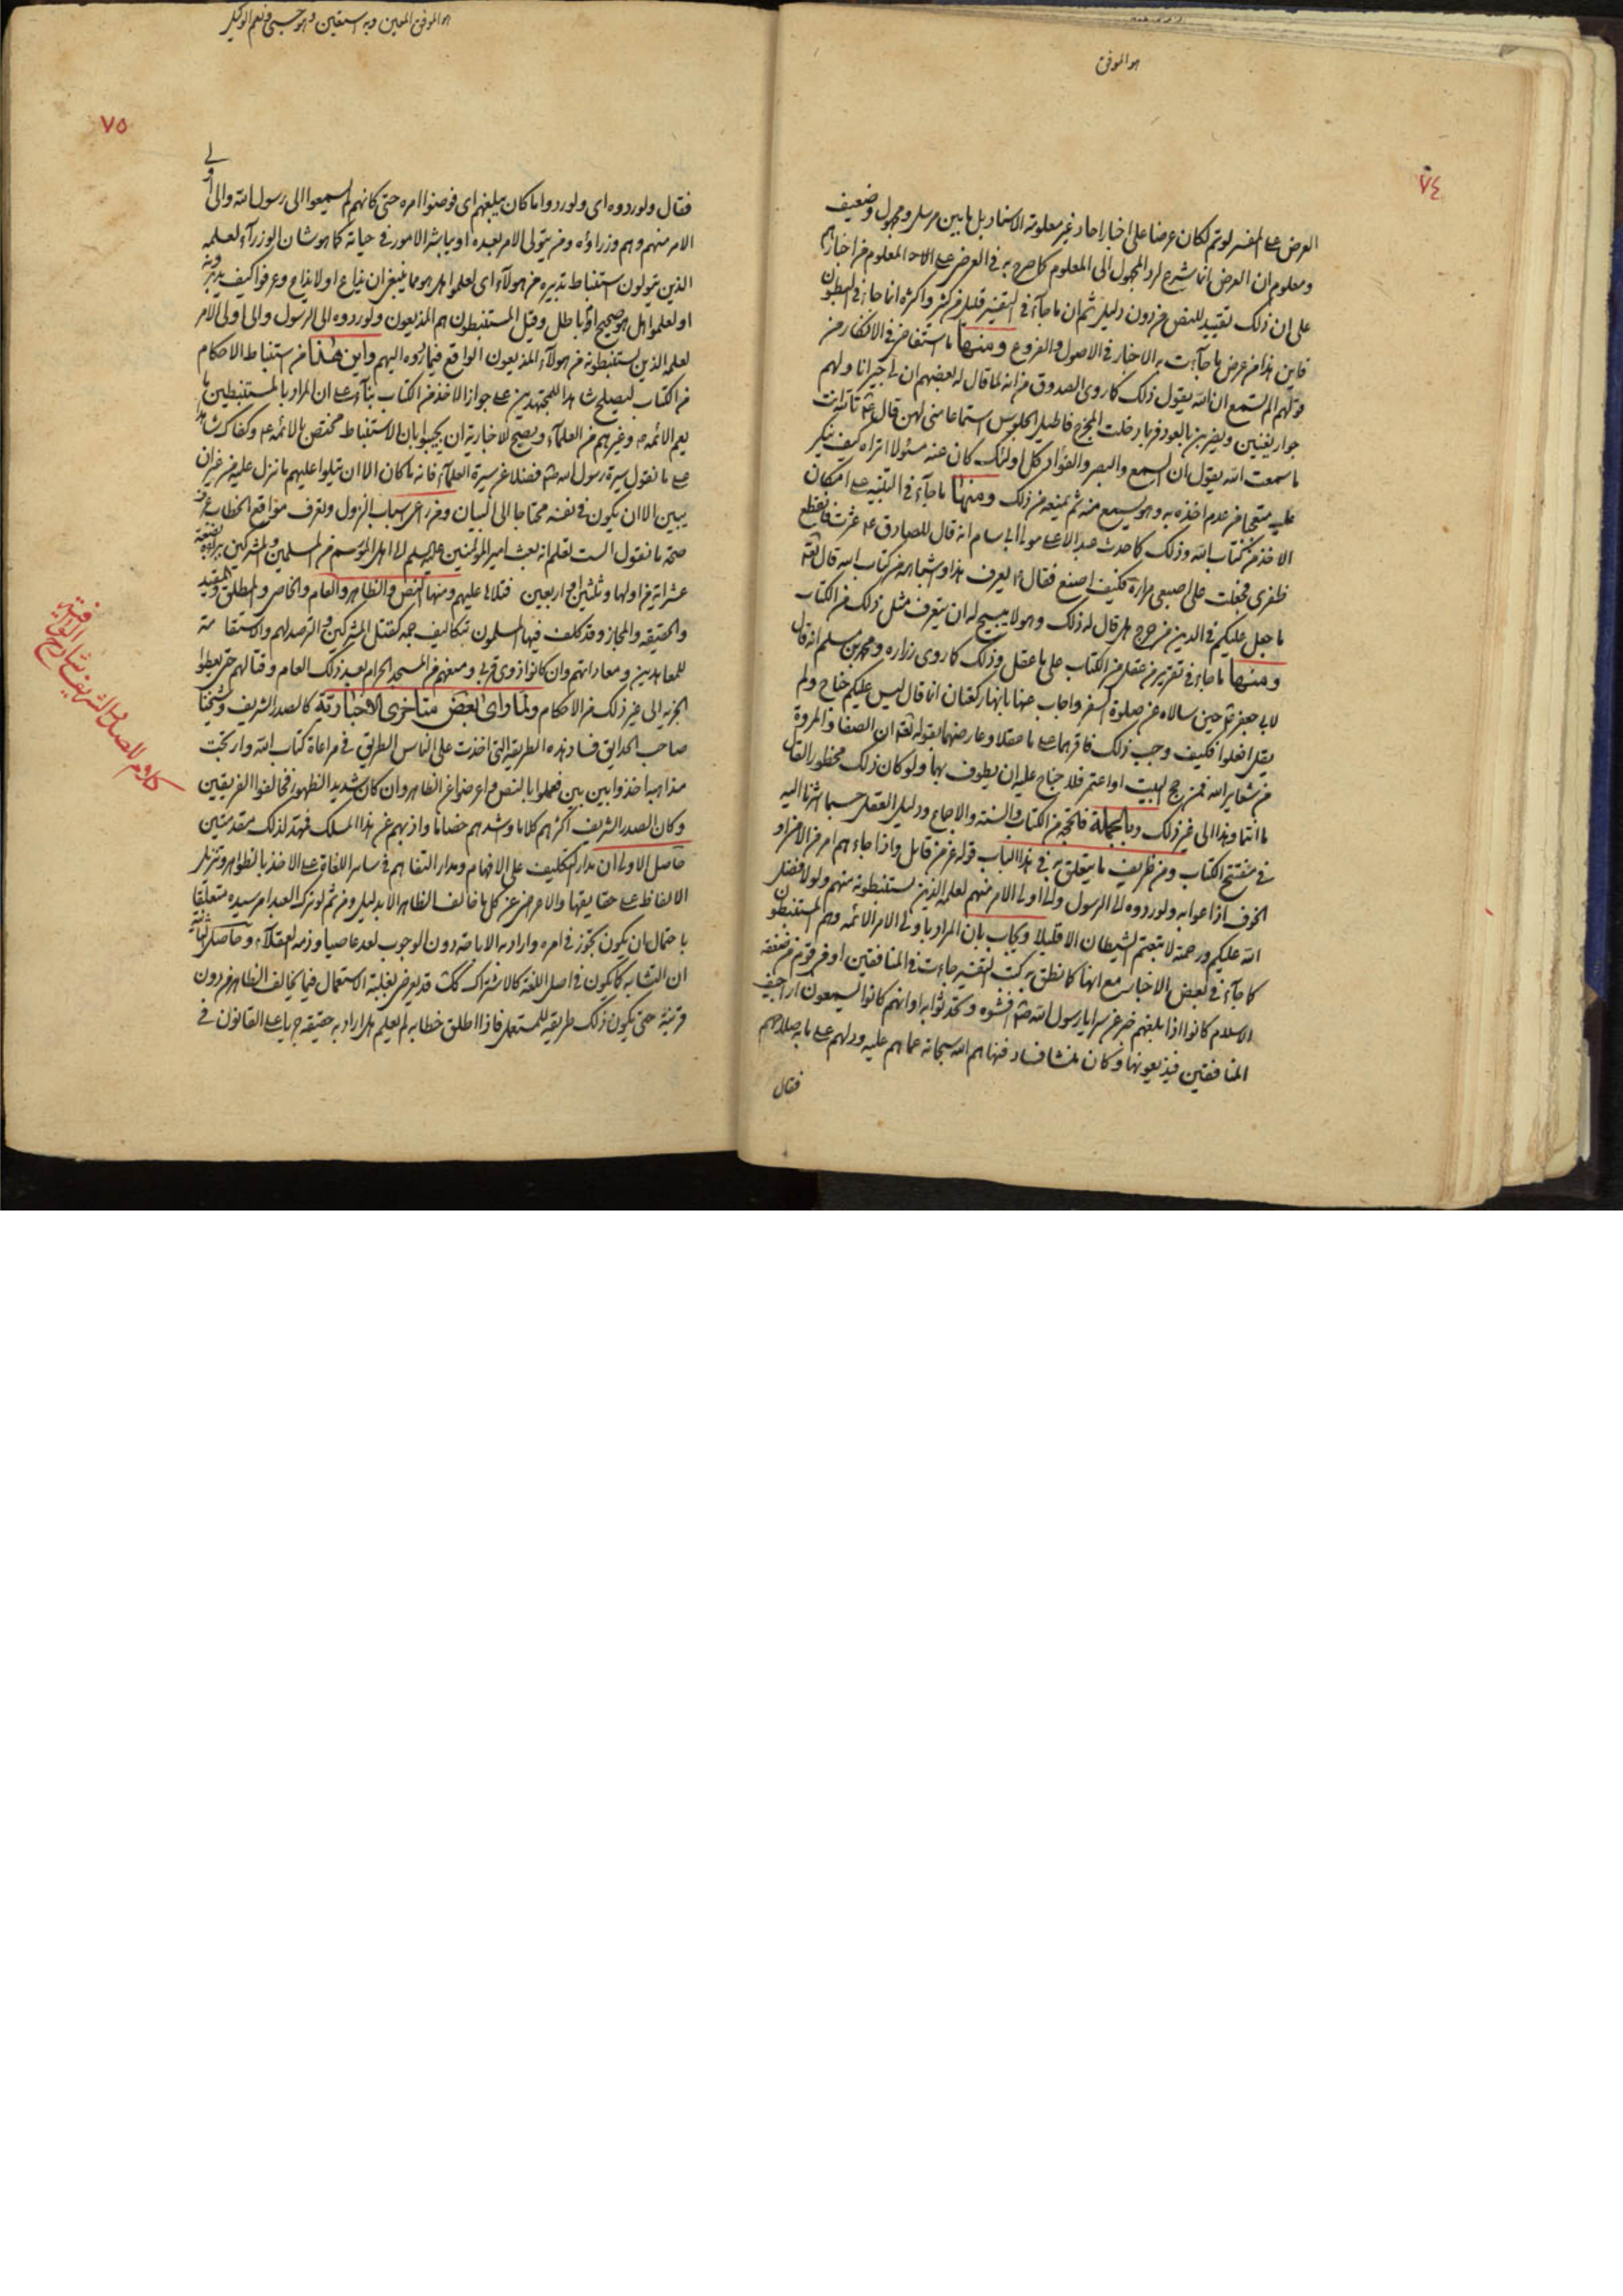 هو الموفق
٧٤
العرض على المفسر لو تم لكان عرضا على اخبار احاد غير معلومة الاسناد بل ما بين مرسل و مجهول وضعيف
ومعلوم ان العرض انما شرع لرد المجهول الى المعلوم كما صرح به في العرض على المعلوم من اخبارهم
على ان ذلك تقييد للنص من دون دليل ثم ان ما جاء في التفسير قليل من كثير واكثره انما جاء في البطون
فاين هذا من عرض ما جاءت به الاخبار في الاصول والفروع ومنها ما استفاض في الانكار من
قولهم الم تسمع ان الله يقول ذلك كما روى الصدوق من انه لما قال له بعضهم ان لي جيرانا ولهم
جوار يغنين ويضربن بالعود فربما دخلت المخرج فاطيل الجلوس استماعا مني لهن قال تالله انت
ما سمعت الله يقول ان السمع والبصر والفؤاد كل اولئك كان عنه مسئولا اتراه كيف ينكر
عليه متعجبا من عدم اخذه به وهو يسمع منه ثم يمنعه من ذلك ومنها ما جاء في التنبيه على امكان
الاخذ من كتاب الله وذلك كما حدث عبد الاعلى مولى ال سام انه قال للصادق ع عثرت فانقطع
ظفري فجعلت على اصبعي مرارة فكيف اصنع فقال ع يعرف هذا واشباهه من كتاب الله قال الله
ما جعل عليكم في الدين من حرج هل قال له ذلك وهو لا يبيح له ان يتعرف مثل ذلك من الكتاب
ومنها ما جاء في تقرير من عقل من الكتاب على ما عقل وذلك كما روى زراره ومحمد بن مسلم انه قال
لابي جعفر حين سالاه عن صلوة السفر واجاب عنها بانها ركعتان انما قال ليس عليكم جناح ولم
يقل افعلوا فكيف وجب ذلك فاقرهما على ما عقلا وعارضهما بقوله ان الصفا والمروة
من شعاير الله فمن حج البيت او اعتمر فلا جناح عليه ان يطوف بهما ولو كان ذلك محظورا لقال
ما انتما وهذا الى غير ذلك وبالجملة فالحجة من الكتاب والسنة والاجماع ودليل العقل حسبما اشرنا اليه
في مفتتح الكتاب ومن ظريف ما يتعلق به في هذا الباب قوله عز من قائل واذا جاءهم امر من الامن او
الخوف اذاعوا به ولو ردوه الى الرسول والى اولى الامر منهم لعلمه الذين يستنبطونه منهم ولولا فضل
الله عليكم ورحمته لاتبعتم الشيطان الا قليلا ويجاب بان المراد باولى الامر الائمه وهم المستنبطون
كما جاء في بعض الاخبار مع انها كما نطق به كتب التفسير جاءت في المنافقين او في قوم من ضعفة
الاسلام كانوا اذا بلغهم خبر عن سرايا رسول الله افشوه وتحدثوا به او انهم كانوا يسمعون اراجيف
المنافقين فيذيعونها وكان منشا فساد فنهاهم الله سبحانه عما هم عليه ودلهم على ما به صلاحهم
فقال
هو الموفق المعين وبه استعين وهو حسبي ونعم الوكيل
٧٥
فقال ولو ردوه اى ولو ردوا ما كان يبلغهم اى فوضوا امره حتى كانهم لم يسمعوا الى رسول الله والى اولى
الامر منهم وهم وزراؤه ومن يتولى الامر بعده او يباشر الامور في حياته كما هو شان الوزراء لعلمه
الذين يتولون استنباط تدبيره من هولاء اى لعلموا هل هو مما ينبغى ان يذاع او لا يذاع وعرفوا كيف يدبرونه
او لعلموا هل هو صحيح او باطل وقيل المستنبطون هم المذيعون ولو ردوه الى الرسول والى اولى الامر
لعلمه الذين يستنبطونه من هولاء المذيعون الواقع فيما ردوه اليهم واين هذا من استنباط الاحكام
من الكتاب ليصلح شاهدا للمجتهدين على جواز الاخذ من الكتاب بناء على ان المراد بالمستنبطين ما
يعم الائمه ع وغيرهم من العلماء ويصح للاخبارية ان يجيبوا بان الاستنباط مختص بالائمه ع وكفاك شاهدا
على ما نقول سيرة رسول الله فضلا عن سيرة العلماء فانه ما كان الا ان يتلوا عليهم ما نزل عليه من غير ان
يبين الا ان يكون في نفسه محتاجا الى البيان ومن راعى اسباب النزول وتعرف مواقع الخطاب عرف
صحة ما نقول الست تعلم انه بعث امير المؤمنين عليه السلم الى اهل الموسم من المسلمين والمشركين ببراءة
عشر اية من اولها وثلثين او اربعين فتلاها عليهم ومنها النص والظاهر والعام والخاص والمطلق والمقيد
والحقيقه والمجاز وقد كلف فيها المسلمون بتكاليف جمه كقتل المشركين والترصد لهم والاستقامة
للمعاهدين ومعاداتهم وان كانوا ذوى قربى ومنعهم من المسجد الحرام بعد ذلك العام وقتالهم حتى يعطوا
الجزيه الى غير ذلك من الاحكام ولما راى بعض متاخرى الاخبارية كالصدر الشريف وشيخنا
صاحب الحدايق فساد هذه الطريقه التى اخذت على الناس الطريق في مراعاة كتاب الله وارتجت
مذاهب اخذوا بين بين فعملوا بالنص واعرضوا عن الظاهر وان كان شديد الظهور فخالفوا الفريقين
وكان الصدر الشريف اكثرهم كلاما واشدهم خصاما واذبهم عن هذا المسلك فمهد لذلك مقدمتين
حاصل الاولى ان مدار التكليف على الافهام ومدار التفاهم في ساير اللغات على الاخذ بالظواهر وتنزيل
الالفاظ على حقايقها والاعراض عن كل ما خالف الظاهر الا بدليل ومن ثم لو ترك العبد امر سيده متعلقا
باحتمال ان يكون تجوز في امره واراد به الاباحة دون الوجوب لعد عاصيا وذمه العقلاء وحاصل الثانية
ان التشابه كما يكون في اصل اللغة كالاشتراك كك قد يعرض لغلبة الاستعمال فيما يخالف الظاهر من دون
قرينة حتى يكون ذلك طريقه للمستعمل فاذا اطلق خطابه لم يعلم هل اراد به حقيقه جريا على القانون في
كلام للصدر الشريف شارح الوافية